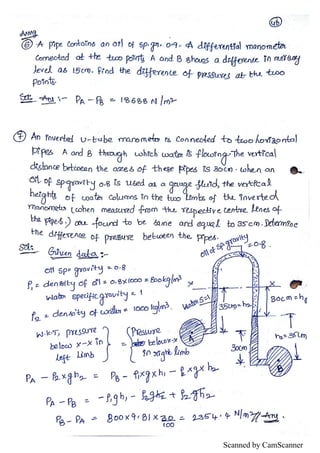 46
Aimy
⑥ A pipe contains an oil of sp.gr. 0.9. A differential manometer
connected at the two points A and B shows a difference in mercury
level as 15cm. Find the difference of pressures at the two
points.
Sol: Ans :- PA - PB = 18688 N/m²
⑦ An inverted U-tube manometer is connected to two horizontal
pipes A and B through which water is flowing. The vertical
distance between the axes of these pipes is 30cm. when an
oil of sp.gravity 0.8 is used as a gauge fluid, the vertical
heights of water columns in the two limbs of the inverted
manometer (when measured from the respective centre lines of
the pipes.) are found to be same and equal to 35cm. Determine
the difference of pressure between the pipes.
Sol: Given data:-
oil of sp gravity =0.8
oil sp. gravity = 0.8
ρ₁ = density of oil = 0.8x1000 = 800kg/m³
Water specific gravity = 1
ρ₂ = density of water = 1000 kg/m³
Water S=1
35cm=h₂
30cm=h₁
h₂=35cm
30cm
x x
A
B
W.K.T, pressure below x-x in left limb } = { Pressure below x-x in right limb
PA - ρ₂xgh₂ = PB - ρ₁xgxh₁ - ρ₂xgxh₂
PA - PB = -ρ₁gh₁ - ρ₂gh₂ + ρ₂gh₂
PB - PA = 800x9.81x30/100 = 2354.4 N/m² Ans.
Scanned by CamScanner